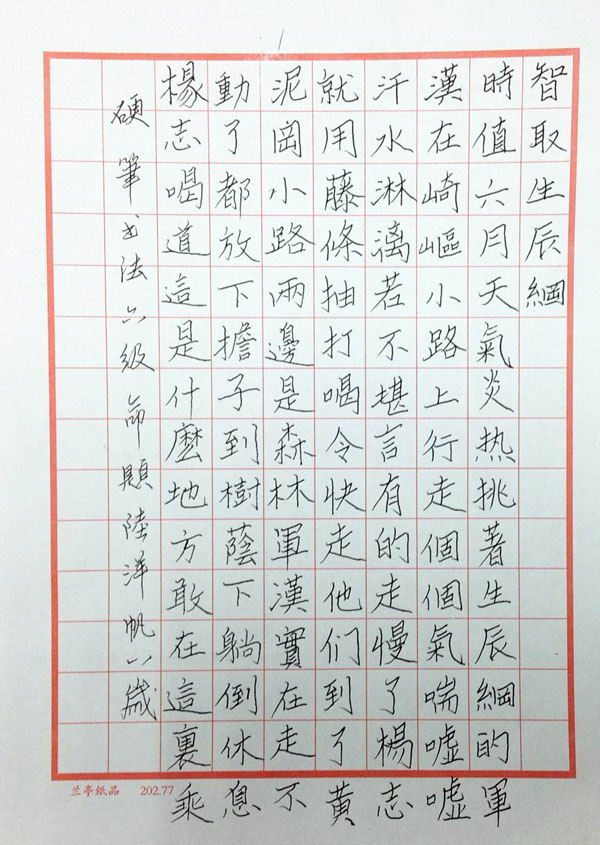 智取生辰綱
時值六月天氣炎热挑著生辰綱的軍
漢在崎嶇小路上行走個個氣喘嘘嘘
汗水淋漓若不堪言有的走慢了楊志
就用藤條抽打喝令快走他们到了黃
泥岡小路兩邊是森林軍漢實在走不
動了都放下擔子到樹蔭下躺倒休息
楊志喝道這是什麼地方敢在這裏乘
硬筆书法六级命題陸洋帆八歲
兰亭纸品 202.77